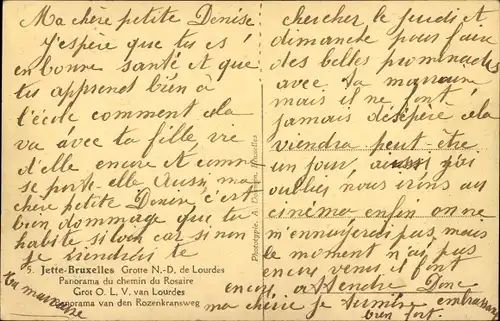 Ma chère petite Denise
J'espère que tu es
en bonne santé et que
tu apprend bien à
l'école comment cela
va avec ta fille, vie
d'elle encore et comme
se porte-elle Aussi, ma
chère petite Denise c'est
bien dommage que tu
habite si loin car si non
je viendrais te
5. Jette-Bruxelles Grotte N.-D. de Lourdes
Panorama du chemin du Rosaire
Grot O. L. V. van Lourdes
Panorama van den Rozenkransweg
Ta marraine
Phototypie, A. Bruxelles
chercher le jeudi et
dimanche pour faire
des belles promenades
avec ta marraine
mais il ne font
jamais désépéré cela
viendra peut-être
un jour, aussi j'ai
oublier nous irions au
cinéma enfin on ne
m'ennuyerai pas mais
le moment n'ai pas
encore venus il font
encore attendre Donc
ma chérie je termine embrasse
bien fort.